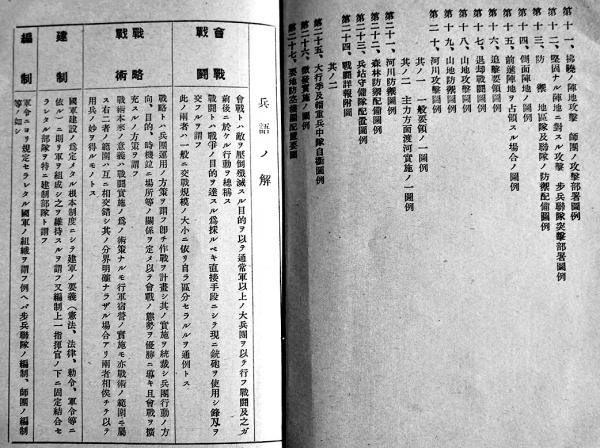 第十一、拂曉ノ陣地攻擊 師團ノ攻擊部署圖例
第十二、堅固ナル陣地ニ對スル攻擊 步兵聯隊突擊部署圖例
第十三、防禦 地區隊及聯隊ノ防禦配備圖例
第十四、側面陣地ノ圖例
第十五、前進陣地ヲ占領スル場合ノ圖例
第十六、追擊要領圖例
第十七、退却戰鬪圖例
第十八、山地攻擊圖例
第十九、山地防禦圖例
第二十、河川攻擊圖例
其ノ一 一般要領ノ一圖例
其ノ二 主力方面渡河實施ノ一圖例
第二十一、河川防禦圖例
第二十二、森林防禦配備圖例
第二十三、兵站守備隊配置圖例
第二十四、戰鬪詳報附圖
其ノ二
第二十五、大行李及輜重兵中隊自衞圖例
第二十六、徵發實施ノ圖例
第二十七、要地防空部隊配備要圖
兵語ノ解
會戰
戰鬪
會戰トハ敵ヲ壓倒殲滅スル目的ヲ以テ通常軍以上ノ大兵團ヲ以テ行フ戰鬪及之ガ
前後ニ於ケル行動ヲ總稱ス
戰鬪トハ戰爭ノ目的ヲ達スル爲採ルベキ直接手段ニシテ現ニ銃砲ヲ使用シ鋒刄ヲ
交フルヲ謂フ
此ノ兩者ハ一般ニ交戰規模ノ大小ニ依リ自ラ區分セラルルヲ通例トス
戰略
戰術
戰略トハ兵團運用ノ方策ヲ謂フ卽チ作戰ヲ計畫シ其ノ實施ヲ統裁シ兵團行動ノ方
向、目的、時機竝ニ場所等ノ關係ヲ定メ以テ會戰ノ態勢ヲ優勝ニ導キ且會戰ヲ擴
充スルノ方策ヲ謂フ
戰術本來ノ意義ハ戰鬪實施ノ爲ノ術策ナルモ行軍宿營ノ實施モ亦戰術ノ範圍ニ屬
ス右二者ノ範圍ハ互ニ相交錯シ其ノ分界明確ナラザル場合アリ兩者相俟チテ以テ
用兵ノ妙ヲ得ルモノトス
建制
國軍建設ノ爲定メタル根本制度ニシテ建軍ノ要義(憲法、法律、勅令、軍令等ニ
依ル)ニ則リ軍ヲ組成シ之ヲ維持スルヲ謂フ又編制上一指揮官ノ下ニ固定結合セ
ラレタル部隊ヲ特ニ建制部隊ト謂フ
編制
軍令ニヨリ規定セラレタル國軍ノ組織ヲ謂フ例ヘバ步兵聯隊ノ編制、師團ノ編制
等ノ如シ